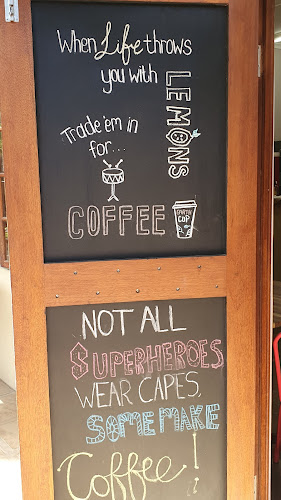 When Life throws
you with
LEMONS
Trade 'em in
for...
COFFEE
CUP
NOT ALL
SUPERHEROES
WEAR CAPES,
SOME MAKE
Coffee!